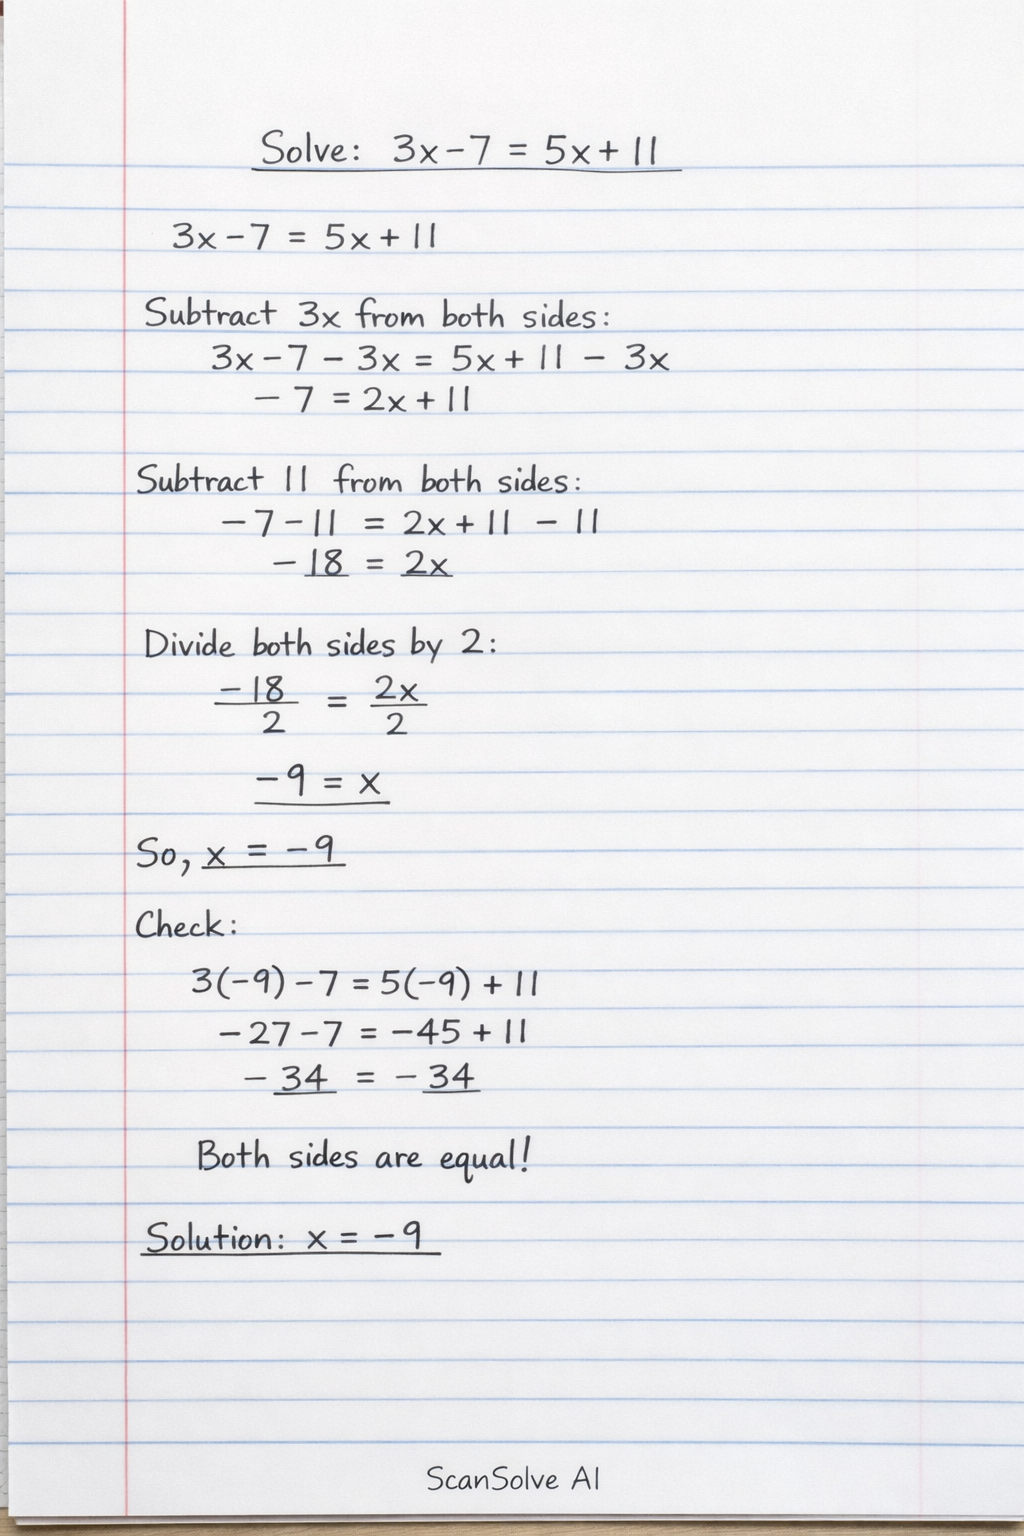 Solve: 3x-7 = 5x+11
3x-7 = 5x+11
Subtract 3x from both sides:
3x-7 - 3x = 5x+ 11 - 3x
- 7 = 2x+11
Subtract 11 from both sides:
-7-11 = 2x+ 11 - 11
-18 = 2x
Divide both sides by 2:
-18 = 2x
2 2
-9 = x
So, x = -9
Check:
3(-9)-7 = 5(-9) + 11
-27-7 = -45 + 11
-34 = -34
Both sides are equal!
Solution: x = -9
ScanSolve AI